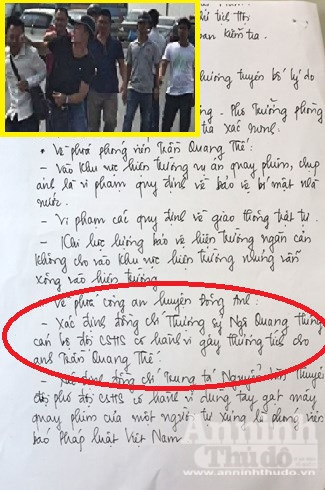 hủ tịch Hội
ban kiểm tra
chương tuyên bố lý do
- Phó Trưởng phòng
xác minh:
• Về phía phóng viên Trần Quang Thế:
- Vào khu vực hiện trường vụ án quay phim, chụp
ảnh là vi phạm quy định về bảo vệ bí mật nhà
nước.
- Vi phạm các quy định về giao thông trật tự.
- Khi lực lượng bảo vệ hiện trường ngăn cản
không cho vào khu vực hiện trường nhưng vẫn
xông vào hiện trường
Về phía công an huyện Đông Anh:
- Xác định đồng chí Thượng sỹ Ngô Quang Hưng
cán bộ đội CSHS có hành vi gây thương tích cho
anh Trần Quang Thế.
- Xác định đồng chí Trung tá Nguyễn Văn Thuyên
đội phó đội CSHS có hành vi dùng tay gạt máy
quay phim của một người tự xưng là phóng viên
báo Pháp luật Việt Nam
Anninh
Thủđô
www.anninhthudo.vn